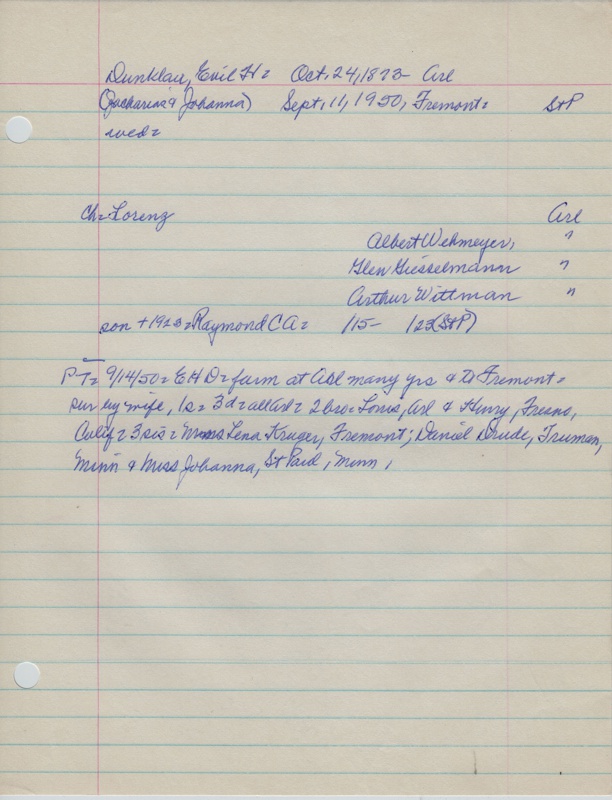 Dunklau, Emil H= Oct. 24, 1873- Arl
(Zacharias & Johanna) Sept. 11, 1950, Fremont= StP
wed=
Ch= Lorenz Arl
Albert Wehmeyer, "
Glen Giesselmann "
Arthur Wittman "
son + 1923= Raymond C A= /15- /23 (StP)
PT= 9/14/50= E H D= farm at Arl many yrs & to Fremont=
sur by wife, 1s= 3d= all Arl= 2 bro= Louis, Arl & Henry, Fresno,
Calif= 3 sis= Mms Lena Kruger, Fremont; Daniel Drude, Truman,
Minn & Miss Johanna, St Paul, Minn,